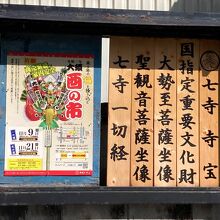 七寺寺宝
国指定重要文化財
大勢至菩薩坐像
聖観音菩薩坐像
七寺一切経
大須
酉の市
9
21